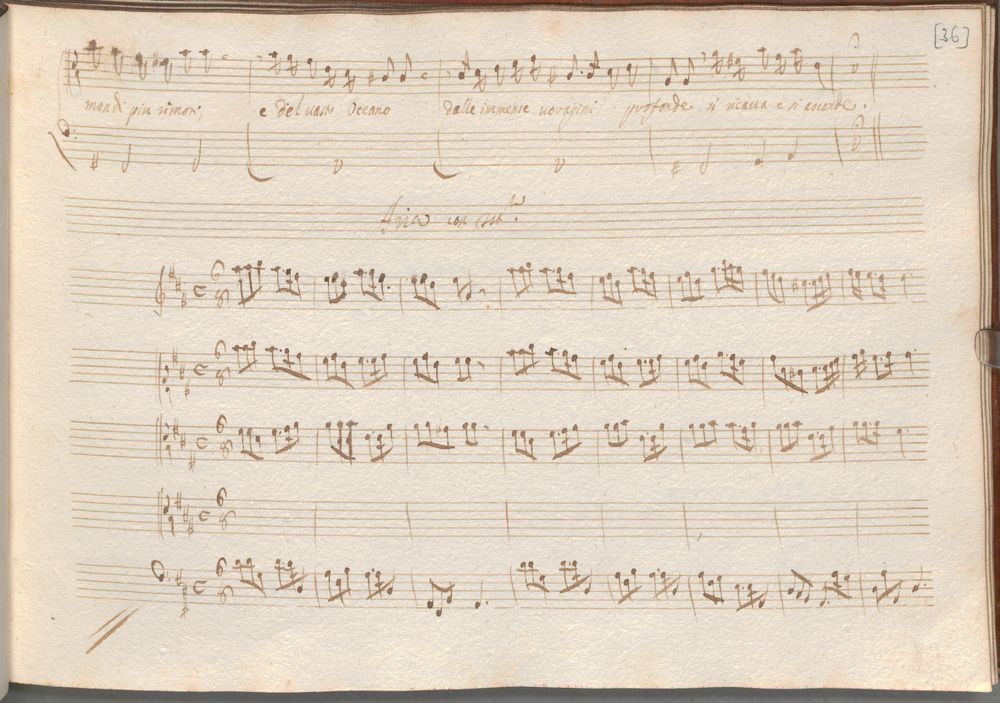 [36]
mondi piu rimoti, e del vasto Oceano dalle immense voragini profonde si ricava e si asconde.
Aria con